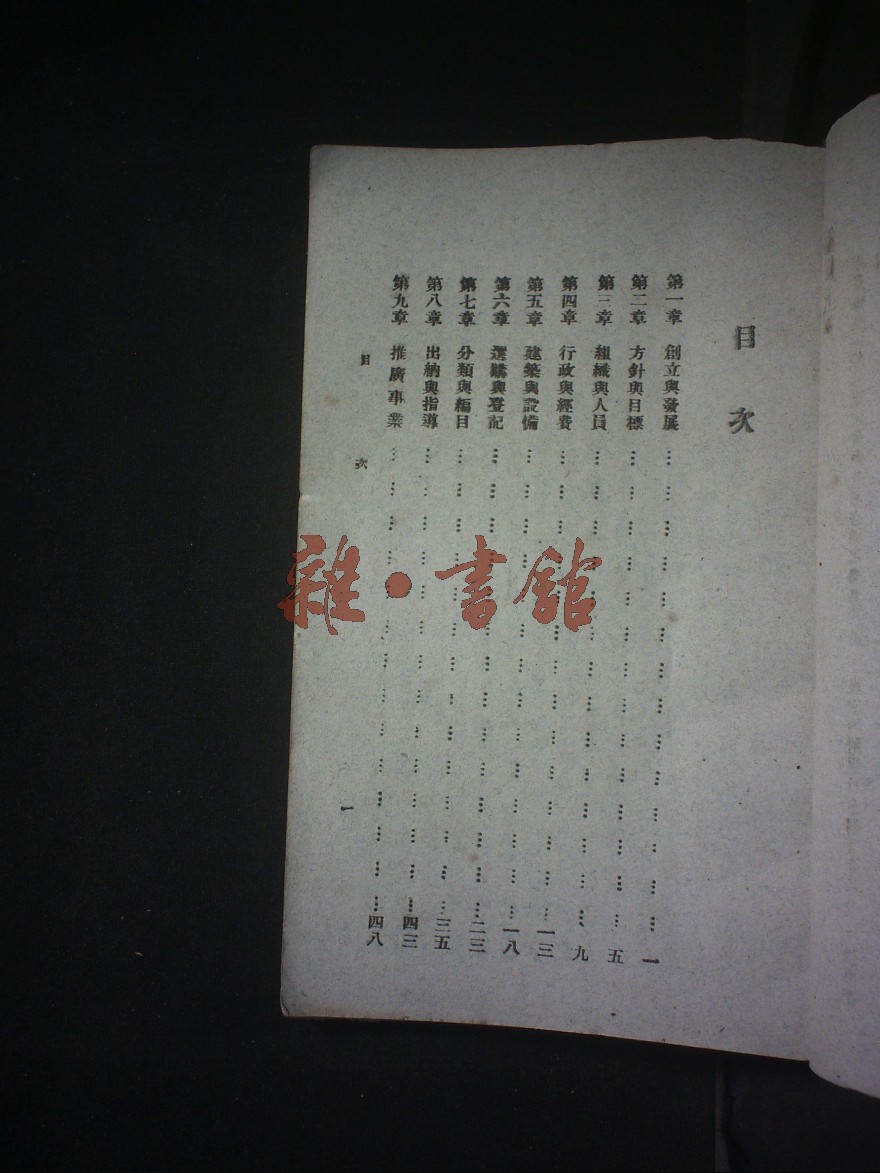 目次
第一章 創立與發展………………………………一
第二章 方針與目標………………………………五
第三章 組織與人員………………………………九
第四章 行政與經費………………………………一三
第五章 建築與設備………………………………一八
第六章 選購與登記………………………………二三
第七章 分類與編目………………………………三五
第八章 出納與指導………………………………四三
第九章 推廣事業………………………………四八
目次 一
雜·書館